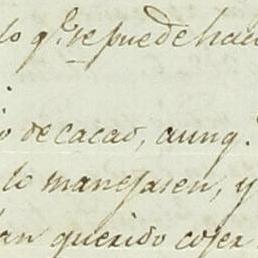 lo q.e se puede hac
o de cacao, aunq.
lo manejasen, y
an querido cojer